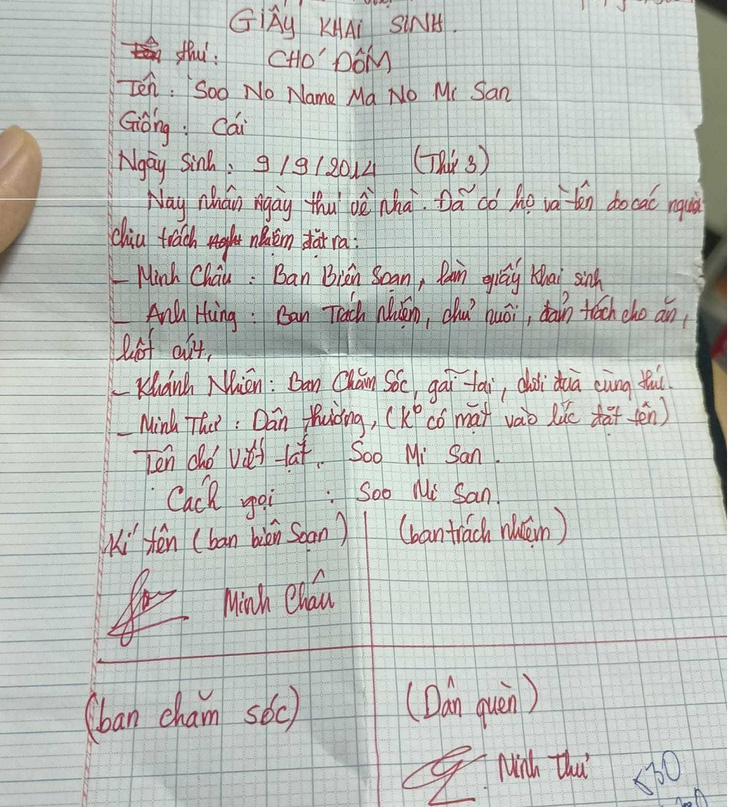 GIẤY KHAI SINH.
thú: CHÓ ĐỐM
Tên: Soo No Name Ma No Mi San
Giống: Cái
Ngày Sinh: 9/9/2014 (Thứ 3)
Nay nhân ngày thú về nhà. Đã có họ và tên do các người
chịu trách nhiệm đặt ra:
- Minh Châu: Ban Biên Soạn, làm giấy khai sinh
- Anh Hùng: Ban Trách Nhiệm, chủ nuôi, đảm trách cho ăn,
hốt cứt,
- Khánh Nhiên: Ban Chăm Sóc, gãi tai, chơi đùa cùng thú.
- Minh Thư: Dân thường, (k° có mặt vào lúc đặt tên)
Tên chó viết tắt: Soo Mi San.
Cách gọi: Soo Mi San.
Kí tên (ban biên Soạn) (ban trách nhiệm)
Minh Châu
(ban chăm sóc) (Dân quèn)
Minh Thư